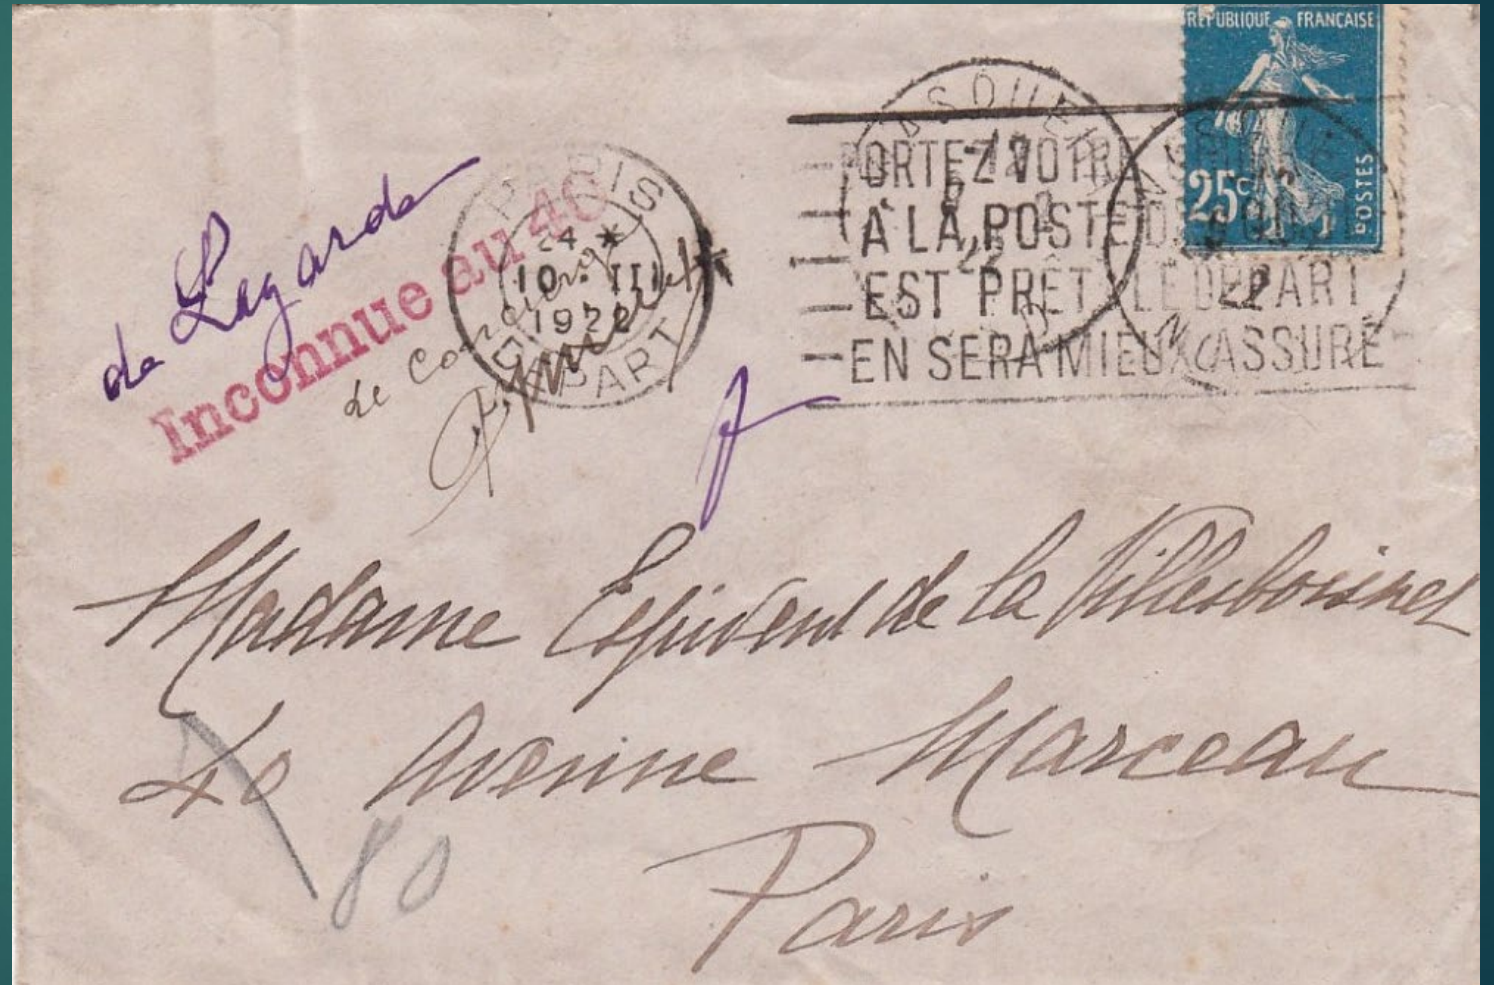 REPUBLIQUE FRANCAISE
25c
POSTES
PORTEZ VOTRE
A LA POSTE DÈS QU'
EST PRÊT LE DEPART
EN SERA MIEUX ASSURÉ
-12
9 2
22
22
PARIS
24 *
10 - III
1922
DEPART
de Lagarde
Inconnue au 40
Le concierge
Madame Espivent de la Villesboisnet
40 Avenue Marceau
80
Paris